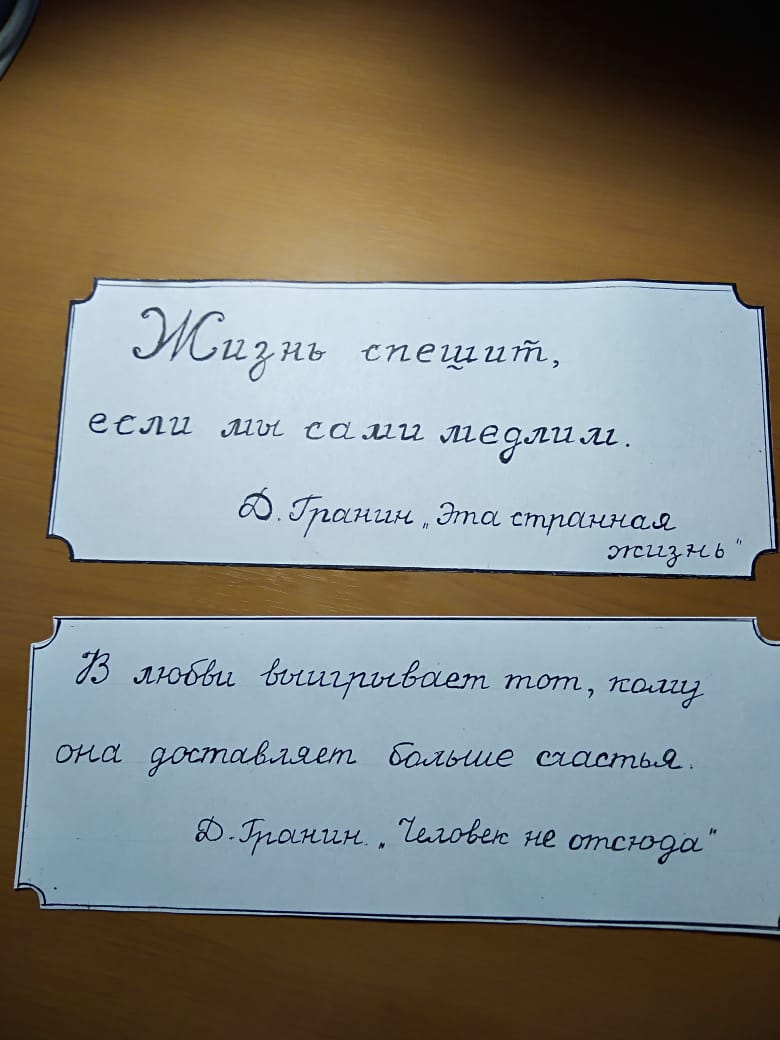 Жизнь спешит,
если мы сами медлим.
Д. Гранин „Эта странная
жизнь"
В любви выигрывает тот, кому
она доставляет больше счастья.
Д. Гранин. „Человек не отсюда"